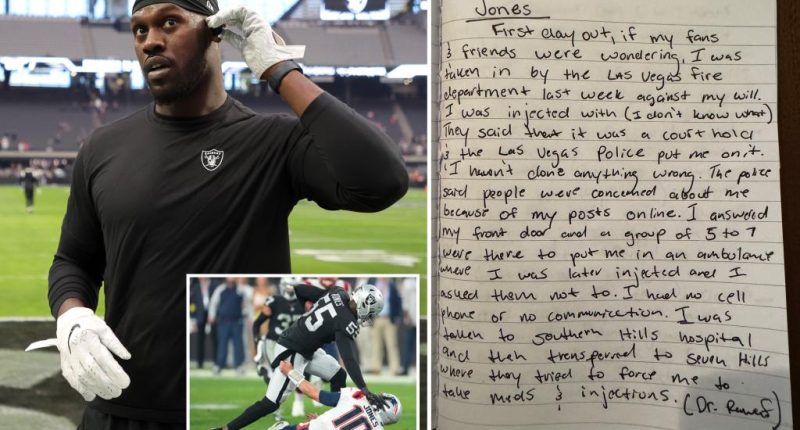 RAIDERS
JONES
55
JONES
10
Jones
First day out, if my fans
& friends were wondering, I was
taken in by the Las Vegas fire
department last week against my will.
I was injected with (I don't know what)
They said that it was a court hold
& the Las Vegas Police put me on it.
I haven't done anything wrong. The police
said people were concerned about me
because of my posts online. I answered
my front door and a group of 5 to 7
were there to put me in an ambulance
where I was later injected and I
asked them not to. I had no cell
phone or no communication. I was
taken to southern Hills hospital
and then transferred to Seven Hills
where they tried to force me to
take meds & injections. (Dr.